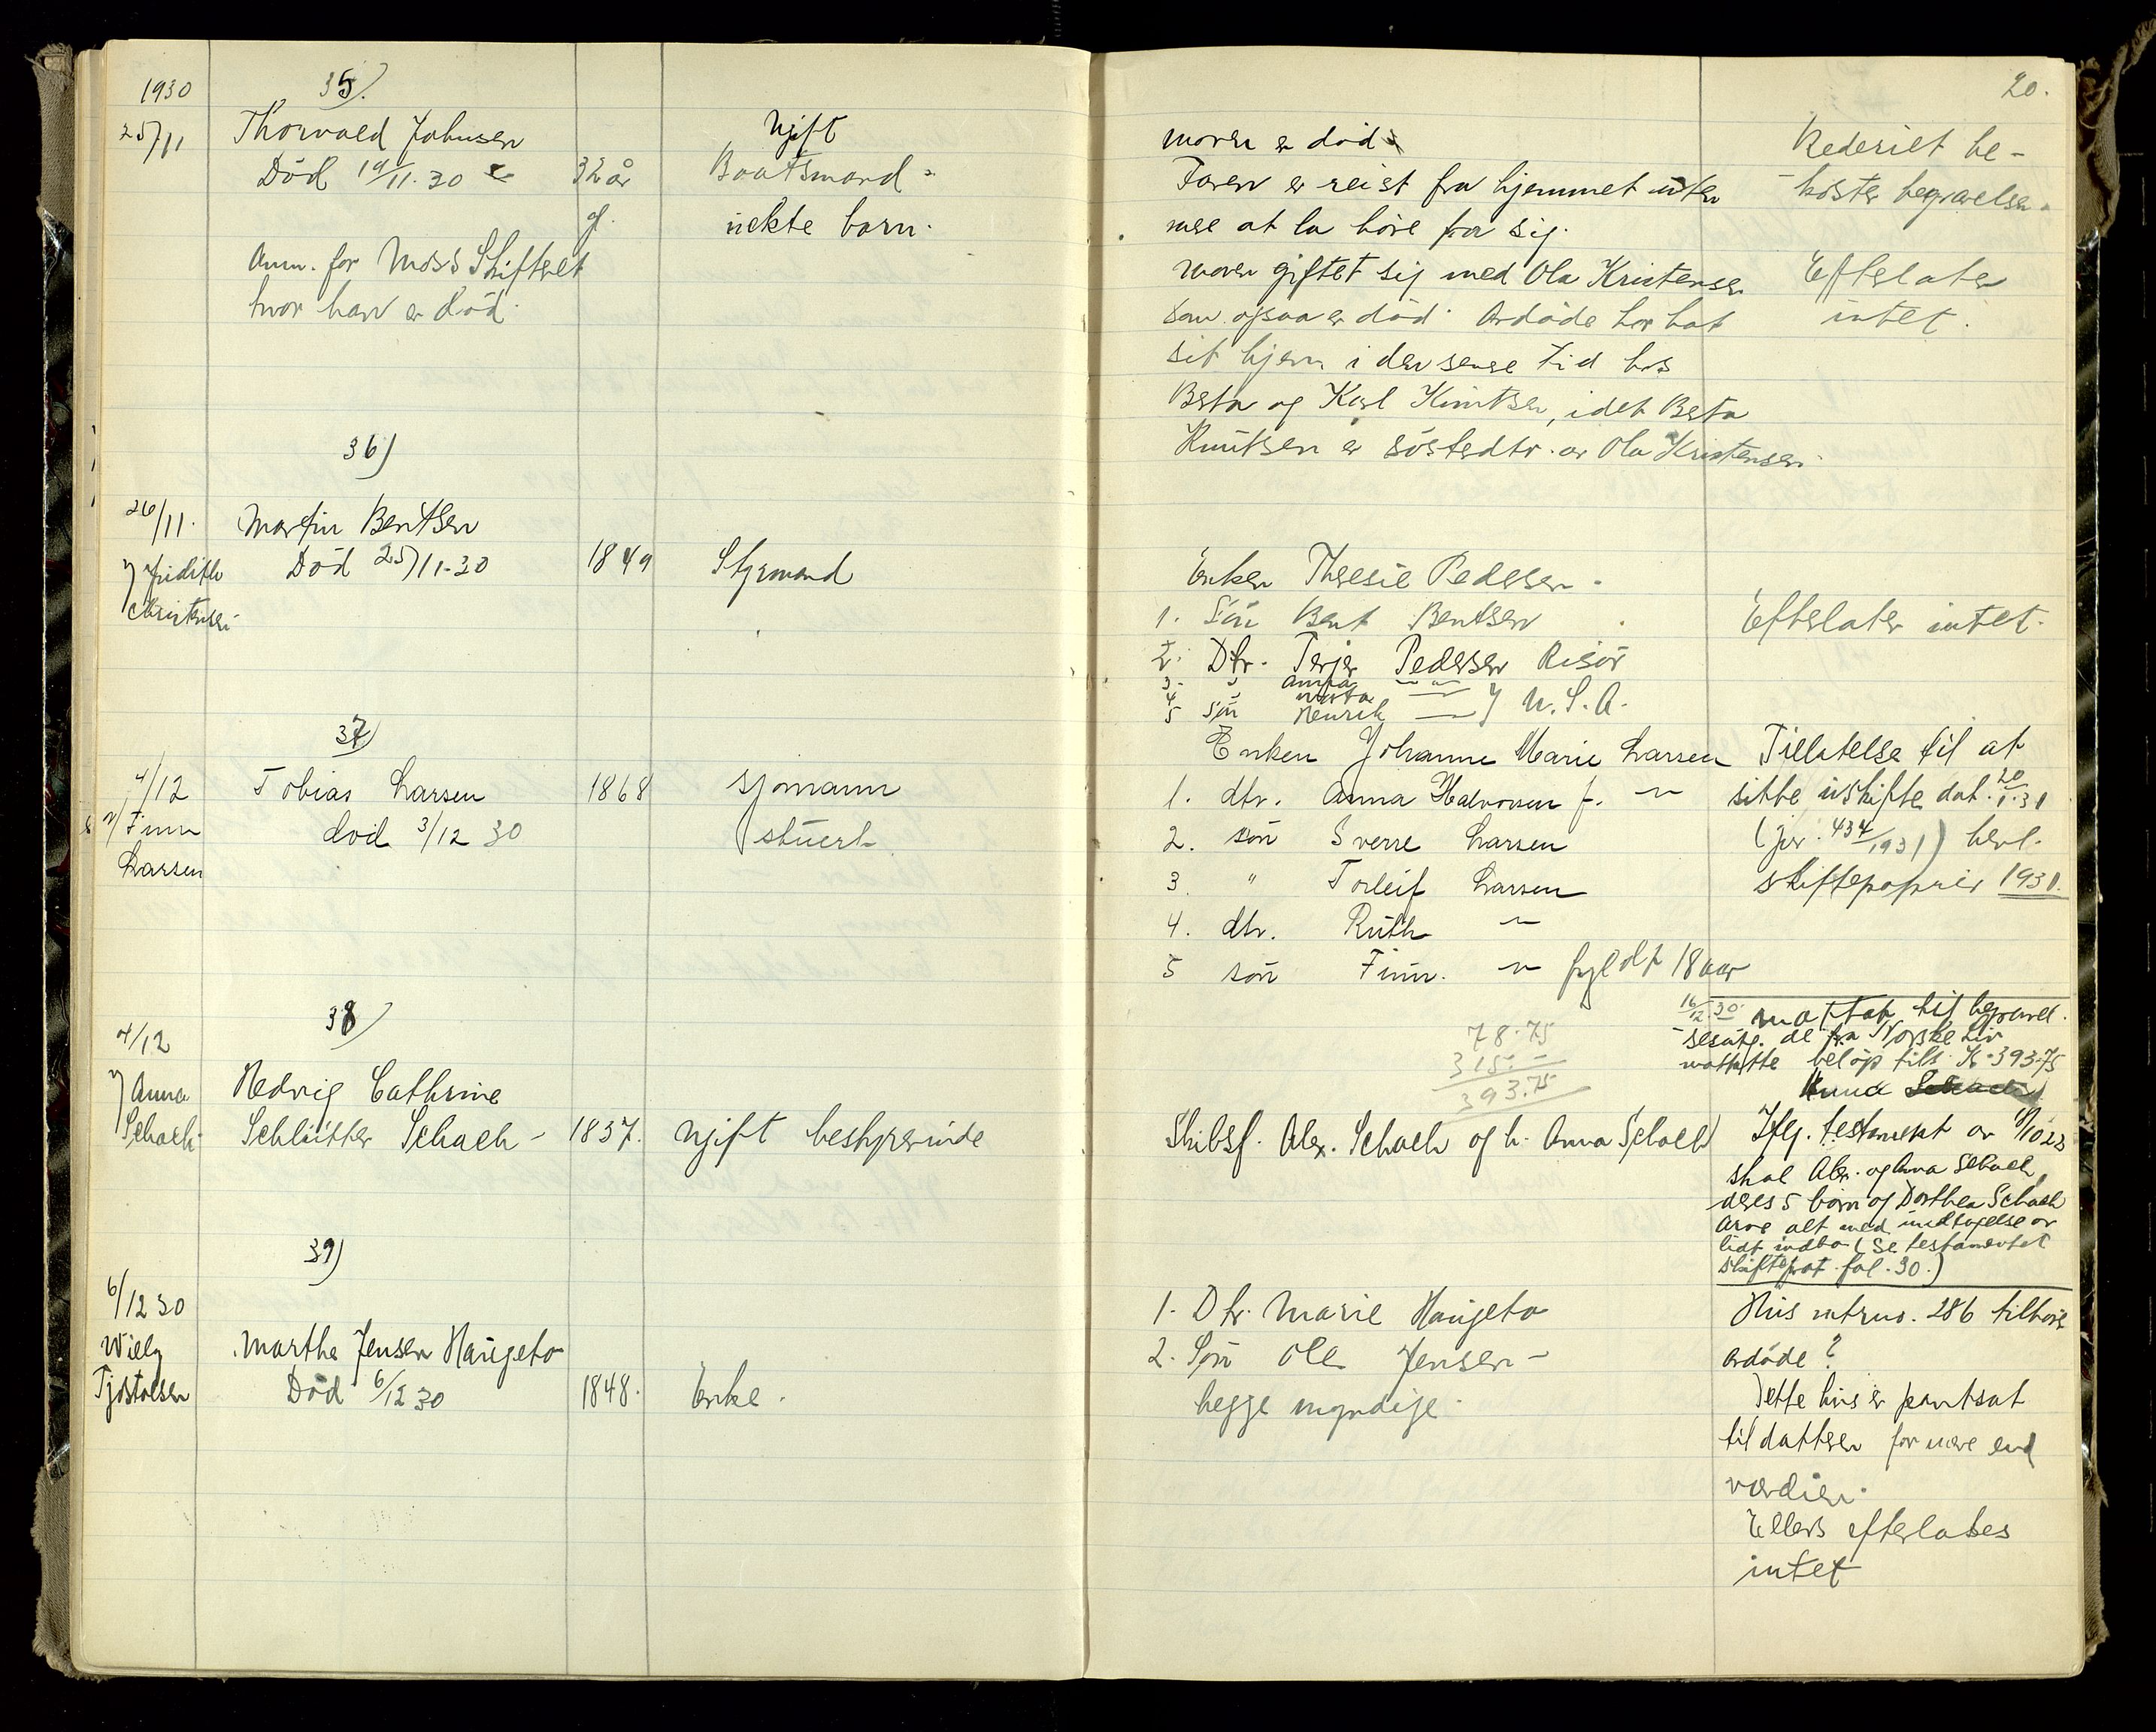 20.
1930
35).
25/11
Thorvald Johnsen
Ugift
Død 19/11.30
32 år
Baatsmand
g.
uekte barn.
Anm. for Moss Skifteret
hvor han er død.
moren er død
Faren er reist fra hjemmet uten
mere at la høre fra sig.
moren giftet sig med Ola Kristensen
som ogsaa er død. Avdøde har hat
sit hjem i den senere tid hos
Berta og Karl Knutsen, idet Berta
Knutsen er søsterdtr. av Ola Kristensen.
Rederiet be-
koster begravelsen.
Efterlater
intet.
36)
26/11.
Martin Bentsen
v/ Judith
Christensen
Død 25/11-30
1849
Styrmand
Enken Theresie Pedersen.
1. Søn Bent Bentsen
2. Dtr. Terjer Pedersen Risør
3. " Anna — " —
4 " Marta —
5 Søn Henrik — } U.S.A.
Efterlater intet.
37)
4/12
Tobias Larsen
1868
sjømann
v/ Finn
Larsen
død 3/12 30
stuert
Enken Johanne Marie Larsen
1. dtr. Anna Halvorsen f. —"—
2. søn Sverre Larsen
3. " Torleif Larsen
4. dtr. Ruth —"—
5 søn Finn. —"— fyldt 18 aar
Tillatelse til at
sitte i uskifte dat. 20/1.31
(jnr. 434/1931) henl.
skiftepapirer 1931.
38)
4/12
v/ Anna
Schach.
Hedvig Cathrine
Schlütter Schach -
1837.
ugift bestyrerinde
78.75
315.-
393.75
Skibsf. Alex. Schach og h. Anna Schach
16/12-30 mottat til begravel-
sesutg. de fra Norske Liv
mottatte beløp tils. K. 393.75
Anna Schach
Iflg. testament av 6/10 23
skal Alex. og Anna Schach,
deres 5 børn og Dorthea Schach
arve alt med undtagelse av
lidt indbo (se testamentet
skifteprot. fol. 30.)
39)
6/12 30
Willy
Tjøstolsen
Marthe Jensen Haugeto
Død 6/12 30
1848.
Enke.
1. Dtr. Marie Haugeto
2. Søn Ole Jensen -
begge myndige.
Hus matrno. 286 tilhører
avdøde?
Dette hus er pantsat
til datteren for mere end
værdien.
Ellers efterlates
intet